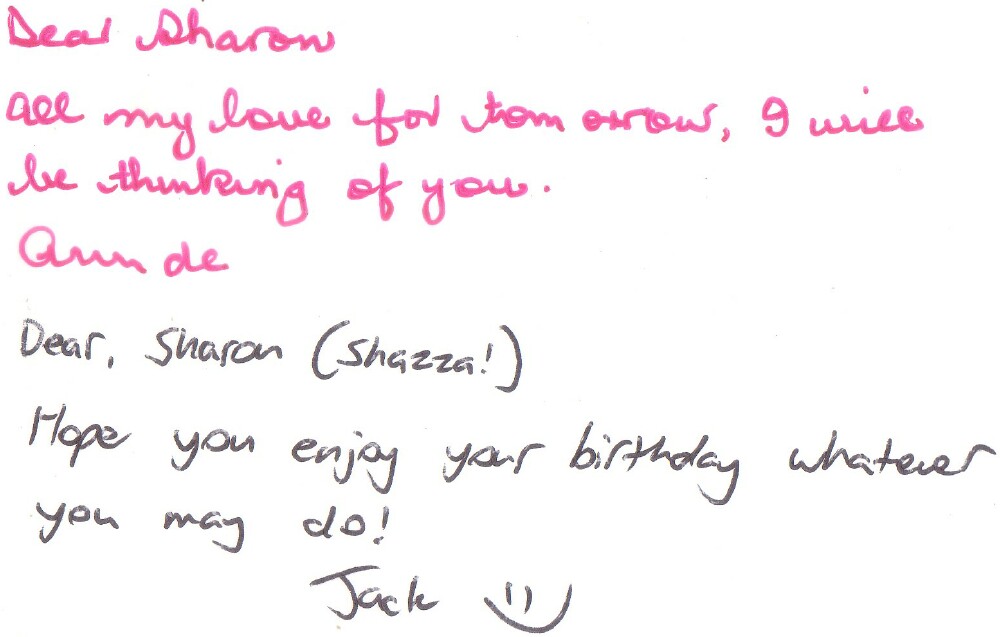 Dear Sharon
all my love for tomorrow, I will
be thinking of you.
Dear, Sharon (Shazza!)
Hope you enjoy your birthday whatever
you may do!
Jack